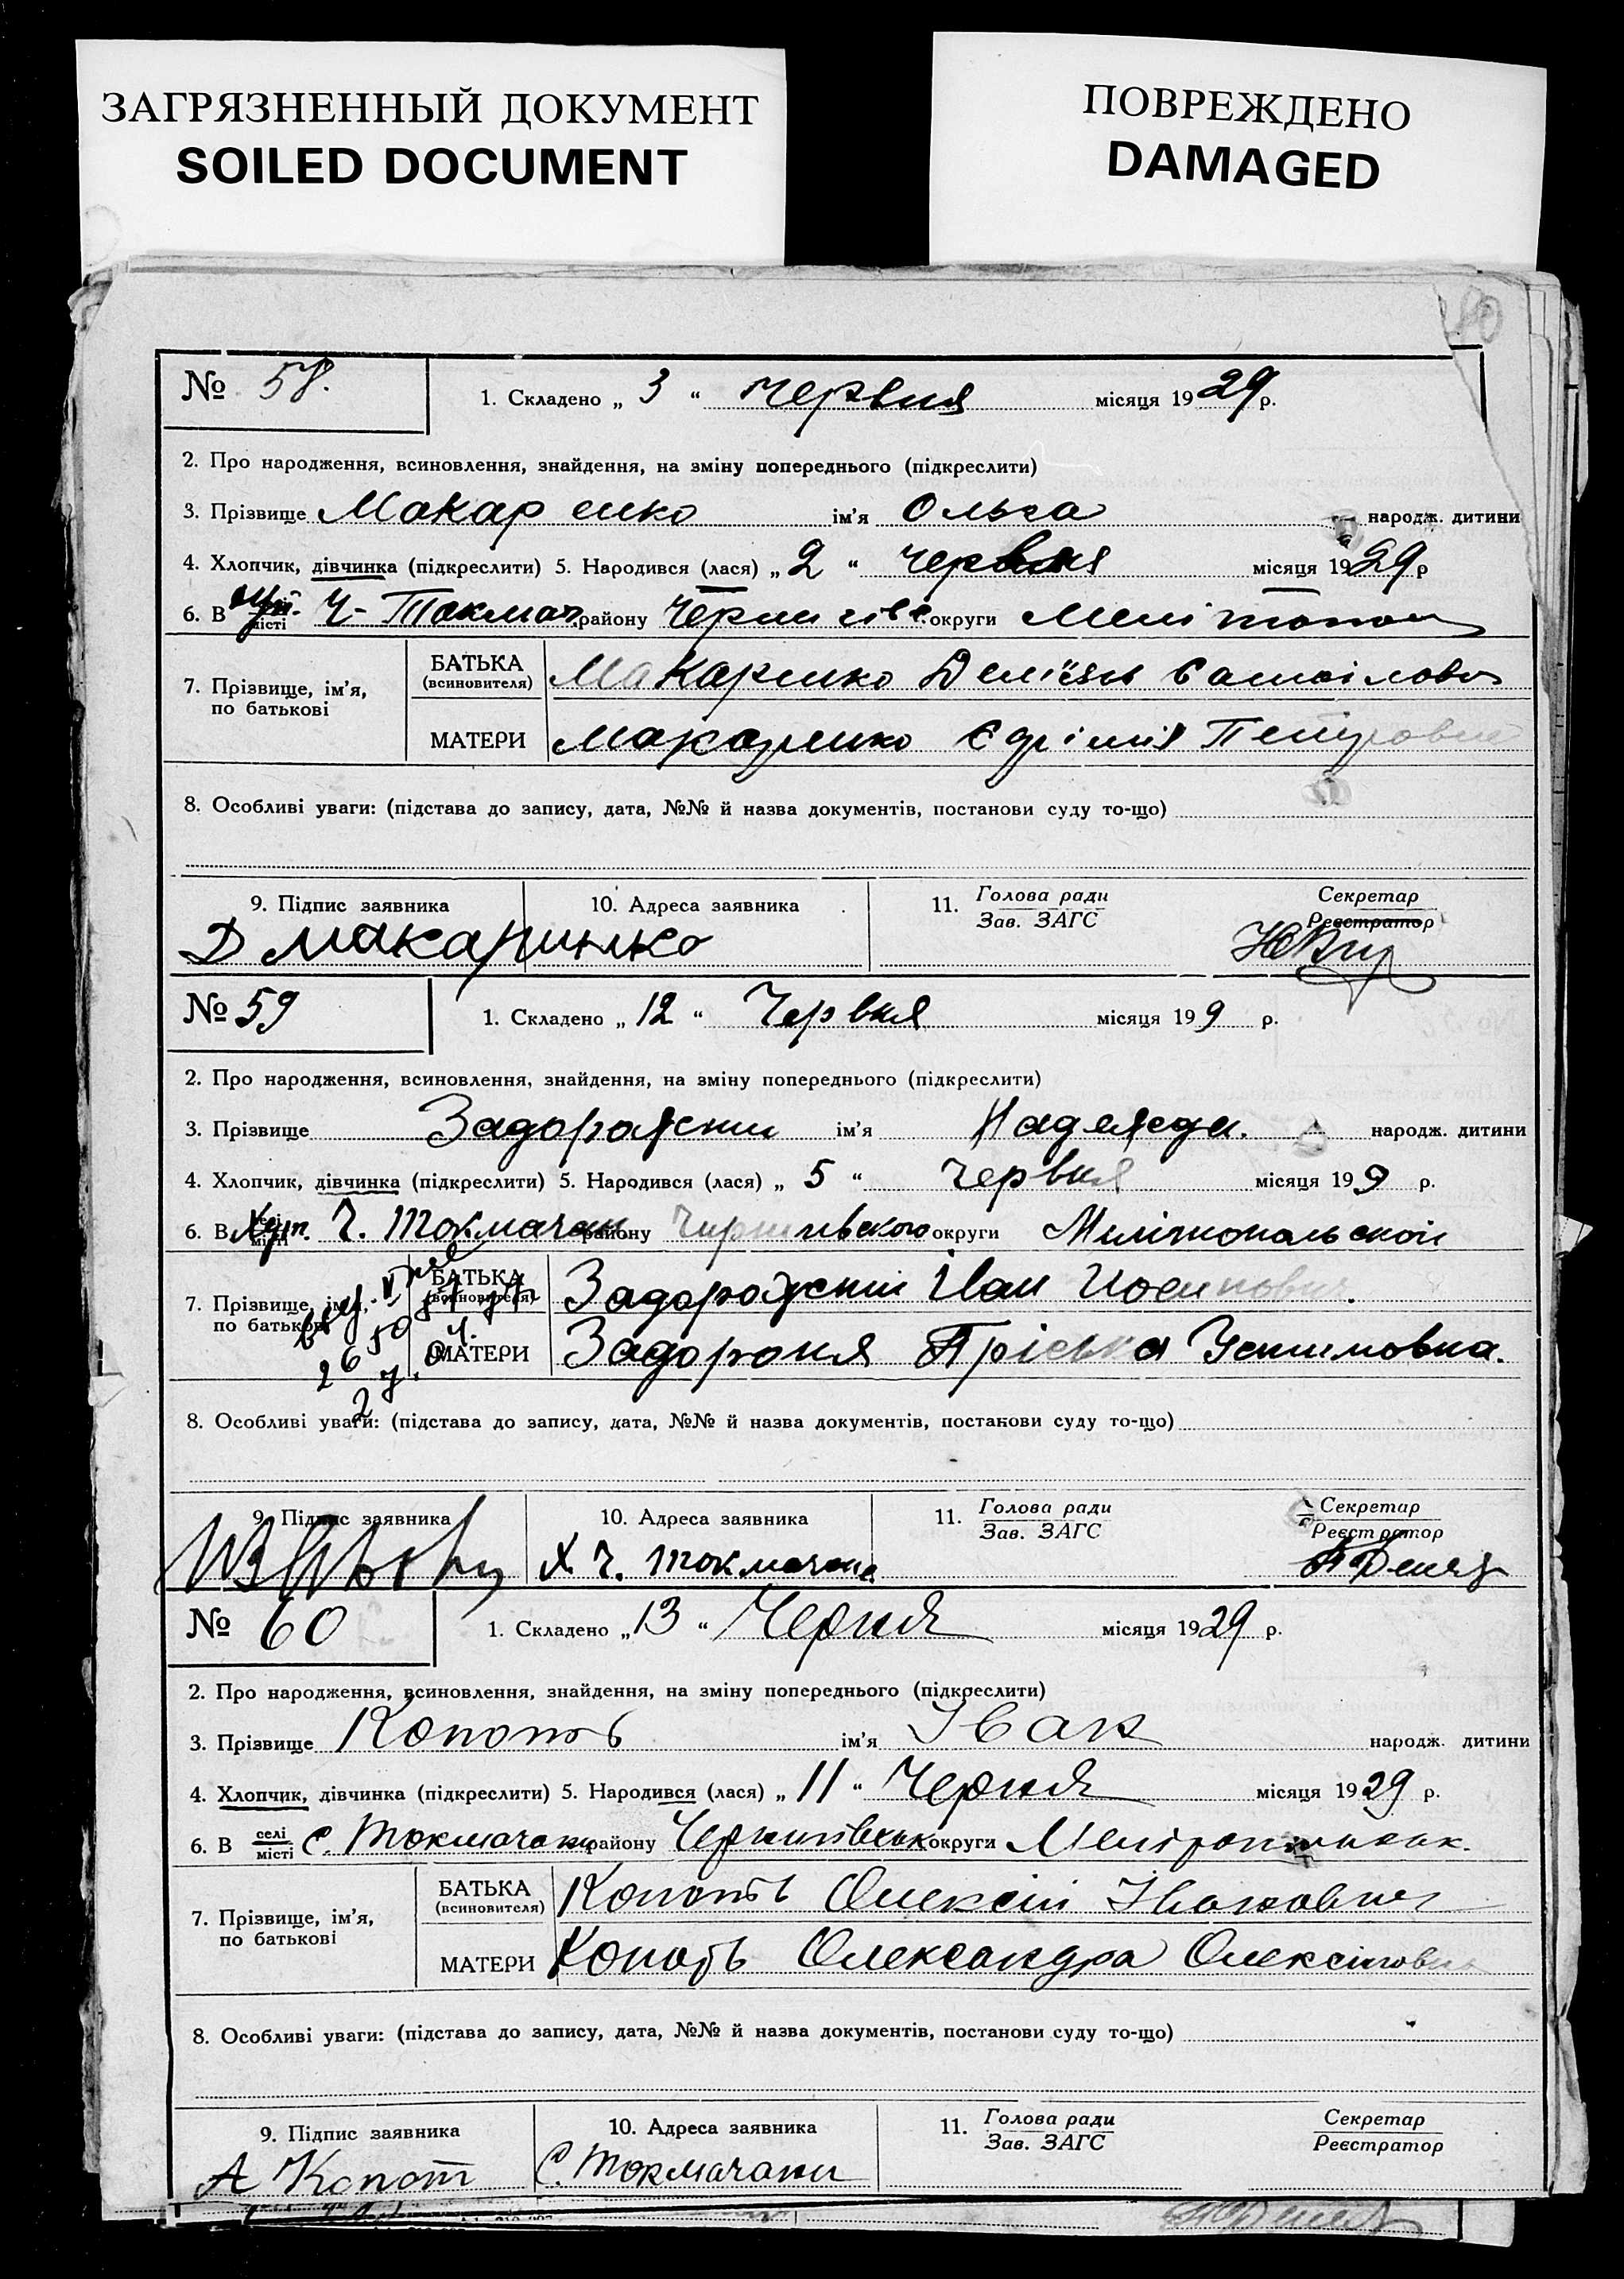 ЗАГРЯЗНЕННЫЙ ДОКУМЕНТ
SOILED DOCUMENT
ПОВРЕЖДЕНО
DAMAGED
№ 58.
1. Складено „ 3 “ червня місяця 1929 р.
2. Про народження, всиновлення, знайдення, на зміну попереднього (підкреслити)
3. Прізвище Макаренко ім'я Ольга народж. дитини
4. Хлопчик, дівчинка (підкреслити) 5. Народився (лася) „ 2 “ червня місяця 1929 р
6. В місті Ч-Токмач району Чернигівс. округи Мелітопол
7. Прізвище, ім'я, по батькові
БАТЬКА (всиновителя) Макаренко Самоілович
МАТЕРИ Макаренко Петровна
8. Особливі уваги: (підстава до запису, дата, №№ й назва документів, постанови суду то-що)
9. Підпис заявника 10. Адреса заявника 11. Голова ради Зав. ЗАГС Секретар Реєстратор
Д Макаринко
№ 59
1. Складено „ 12 “ Червня місяця 199 р.
2. Про народження, всиновлення, знайдення, на зміну попереднього (підкреслити)
3. Прізвище Задорожни ім'я Надежда. народж. дитини
4. Хлопчик, дівчинка (підкреслити) 5. Народився (лася) „ 5 “ Червня місяця 199 р.
6. В Хут. Ч. Токмачан району округи Мелітопольской
7. Прізвище, ім'я, по батькові
БАТЬКА (всиновителя) Задорожний Іван Иосипович.
МАТЕРИ Задорожня Пріська Устимовна.
8. Особливі уваги: (підстава до запису, дата, №№ й назва документів, постанови суду то-що)
9. Підпис заявника 10. Адреса заявника 11. Голова ради Зав. ЗАГС Секретар Реєстратор
Х Ч. Токмачане
№ 60
1. Складено „ 13 “ Черня місяця 1929 р.
2. Про народження, всиновлення, знайдення, на зміну попереднього (підкреслити)
3. Прізвище Копоть ім'я Іван народж. дитини
4. Хлопчик, дівчинка (підкреслити) 5. Народився (лася) „ 11 “ Черня місяця 1929 р.
6. В селі місті С. Токмачани району Чернигівськ округи
7. Прізвище, ім'я, по батькові
БАТЬКА (всиновителя) Копоть Олексій Іванович
МАТЕРИ Копоть Олександра Олексіївна
8. Особливі уваги: (підстава до запису, дата, №№ й назва документів, постанови суду то-що)
9. Підпис заявника 10. Адреса заявника 11. Голова ради Зав. ЗАГС Секретар Реєстратор
А Копот С. Токмачани